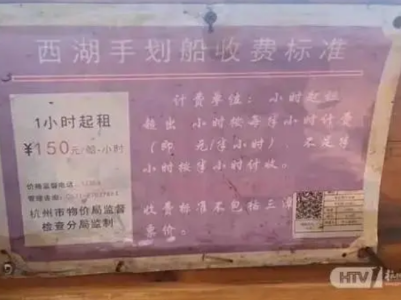 西湖手划船收费标准
1小时起租
¥150元/船·小时
价格监督电话:
管理电话:
杭州市物价局监督
检查分局监制
计费单位: 小时起租
超出 小时按每半小时计费
(即 元/半小时),不足半
小时按半小时计收。
收费标准不包括三潭
票价。
HTV1